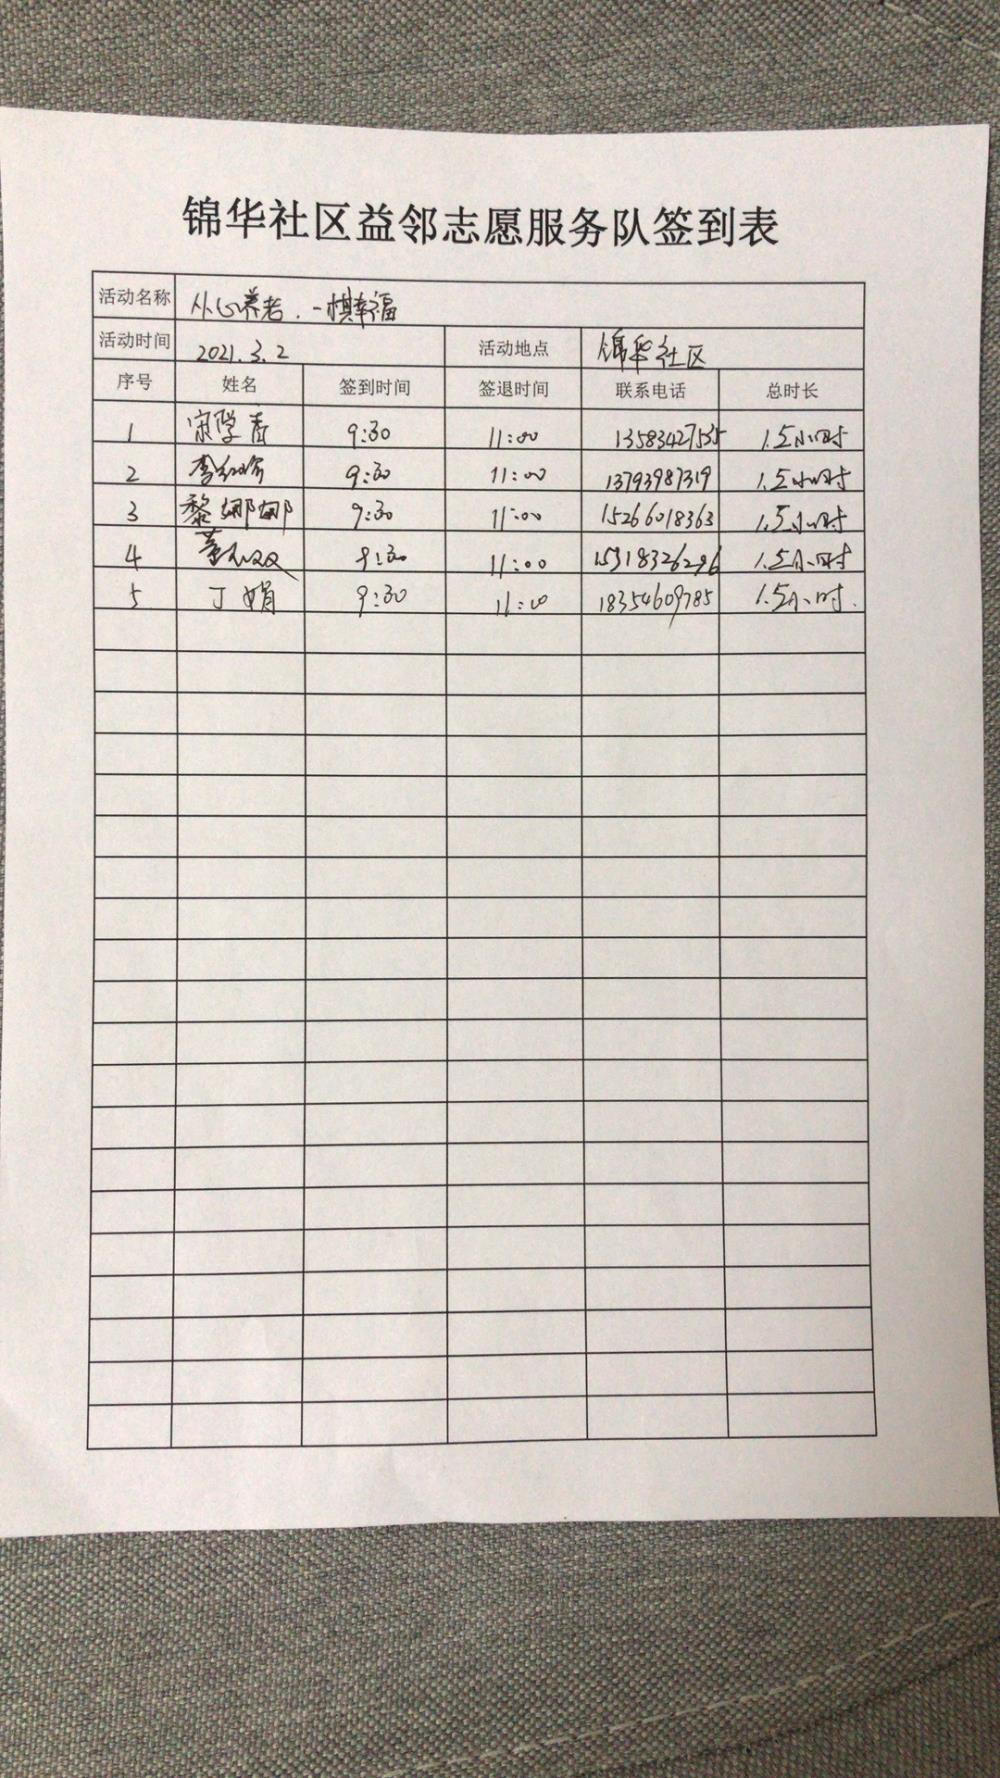 锦华社区益邻志愿服务队签到表
活动名称 从心养老.一棋幸福
活动时间 2021.3.2 活动地点 锦华社区
序号 姓名 签到时间 签退时间 联系电话 总时长
1 宋学春 9:30 11:00 13583427535 1.5小时
2 9:30 11:00 13793987319 1.5小时
3 黎娜娜 9:30 11:00 15266018363 1.5小时
4 9:30 11:00 15318326296 1.5小时
5 丁娟 9:30 11:00 18354609785 1.5小时.